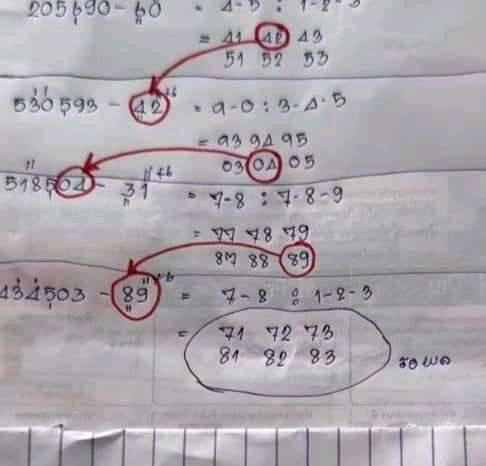 205690-60 = 4-5 : 1-2-3
= 41 42 43
51 52 53
530593 - 42 +6 = 9-0 : 3-4-5
= 93 94 95
03 04 05
518504 - 31 +6 = 7-8 : 7-8-9
= 77 78 79
87 88 89
434503 - 89 +6 = 7-8 : 1-2-3
= 71 72 73
81 82 83 รอผล